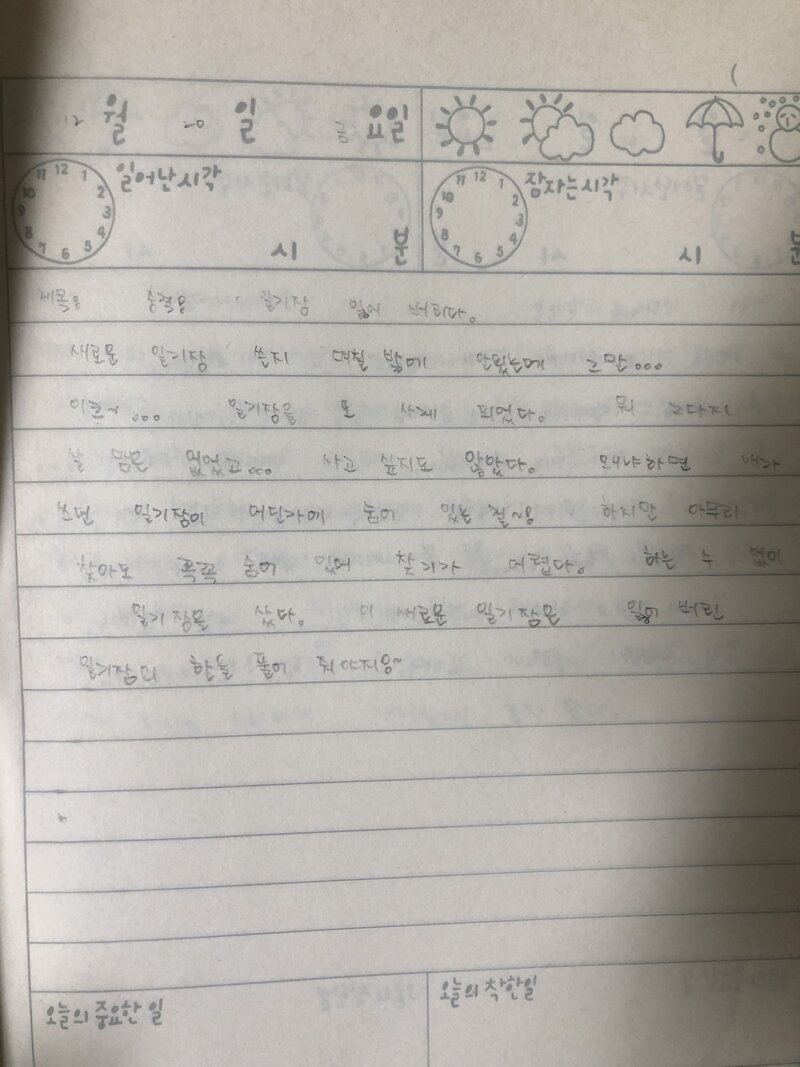 12 월 20 일 금 요일
11 12 1 2 3 4 5 6 7 8 9 10
일어난시각
시 분
11 12 1 2 3 4 5 6 7 8 9 10
잠자는시각
시 분
제목: 충격! 일기장 잃어 버리다.
새로운 일기장 쓴지 며칠 밖에 안됬는데 그만...
이크~... 일기장을 또 사게 되었다. 뭐 그다지
살 맘은 없었고... 사고 싶지도 않았다. 왜냐하면 내가
쓰던 일기장이 어딘가에 숨어 있는 걸~! 하지만 아무리
찾아도 꼭꼭 숨어 있어 찾기가 어렵다. 하는 수 없이
일기장을 샀다. 이 새로운 일기장은 잃어 버린
일기장의 한을 풀어 줘야지!~
오늘의 중요한 일
오늘의 착한일